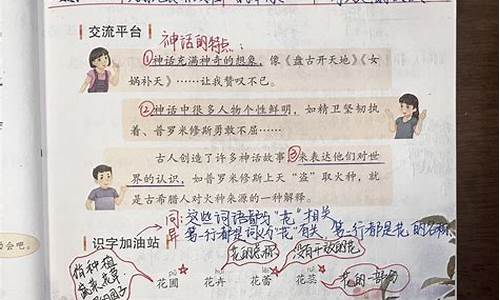 交流平台 神话的特点：
①神话充满神奇的想象，像《盘古开天地》《女
娲补天》……让我赞叹不已。
②神话中很多人物个性鲜明，如精卫坚韧执
着、普罗米修斯勇敢不屈……
古人创造了许多神话故事③来表达他们对世
界的认识，如普罗米修斯上天“盗”取火种，就
是古希腊人对火种来源的一种解释。
同：这些词语都与“花”相关
异：第一行都是词义与“花”有关，第二行都是花的名称
识字加油站
会吧。
花的总称 没有开放的花
花圃 花卉 花蕾 花蕊
花的一部分